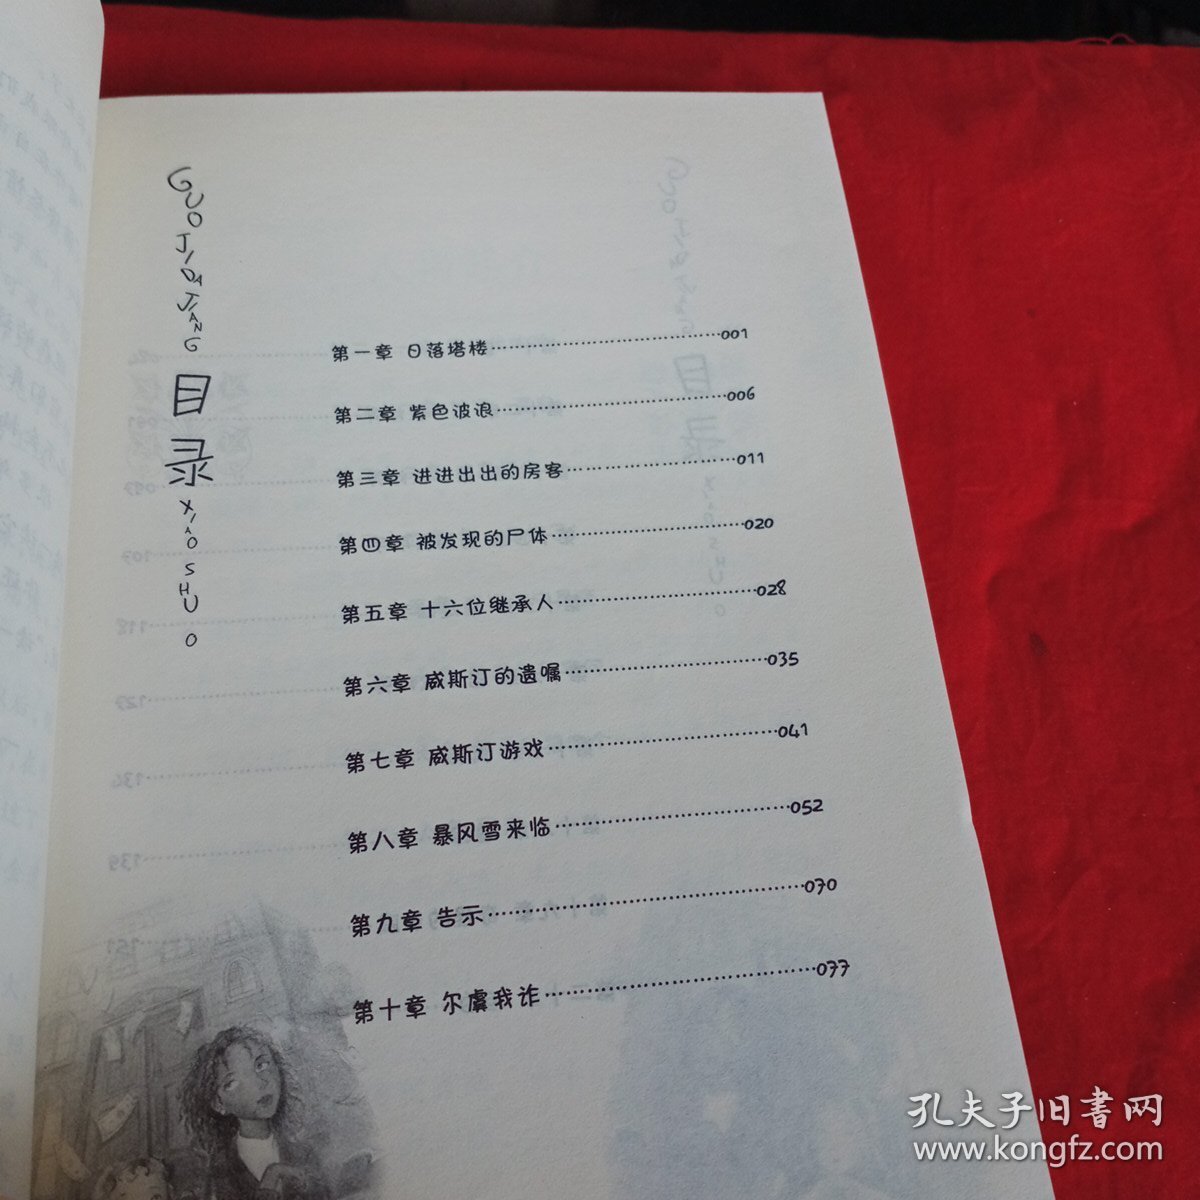 GUOJIDAJIANG
目录
XIAOSHUO
第一章 日落塔楼……………………………001
第二章 紫色波浪……………………………006
第三章 进进出出的房客……………………011
第四章 被发现的尸体………………………020
第五章 十六位继承人………………………028
第六章 威斯汀的遗嘱………………………035
第七章 威斯汀游戏…………………………041
第八章 暴风雪来临…………………………052
第九章 告示…………………………………070
第十章 尔虞我诈……………………………077
孔夫子旧书网
www.kongfz.com